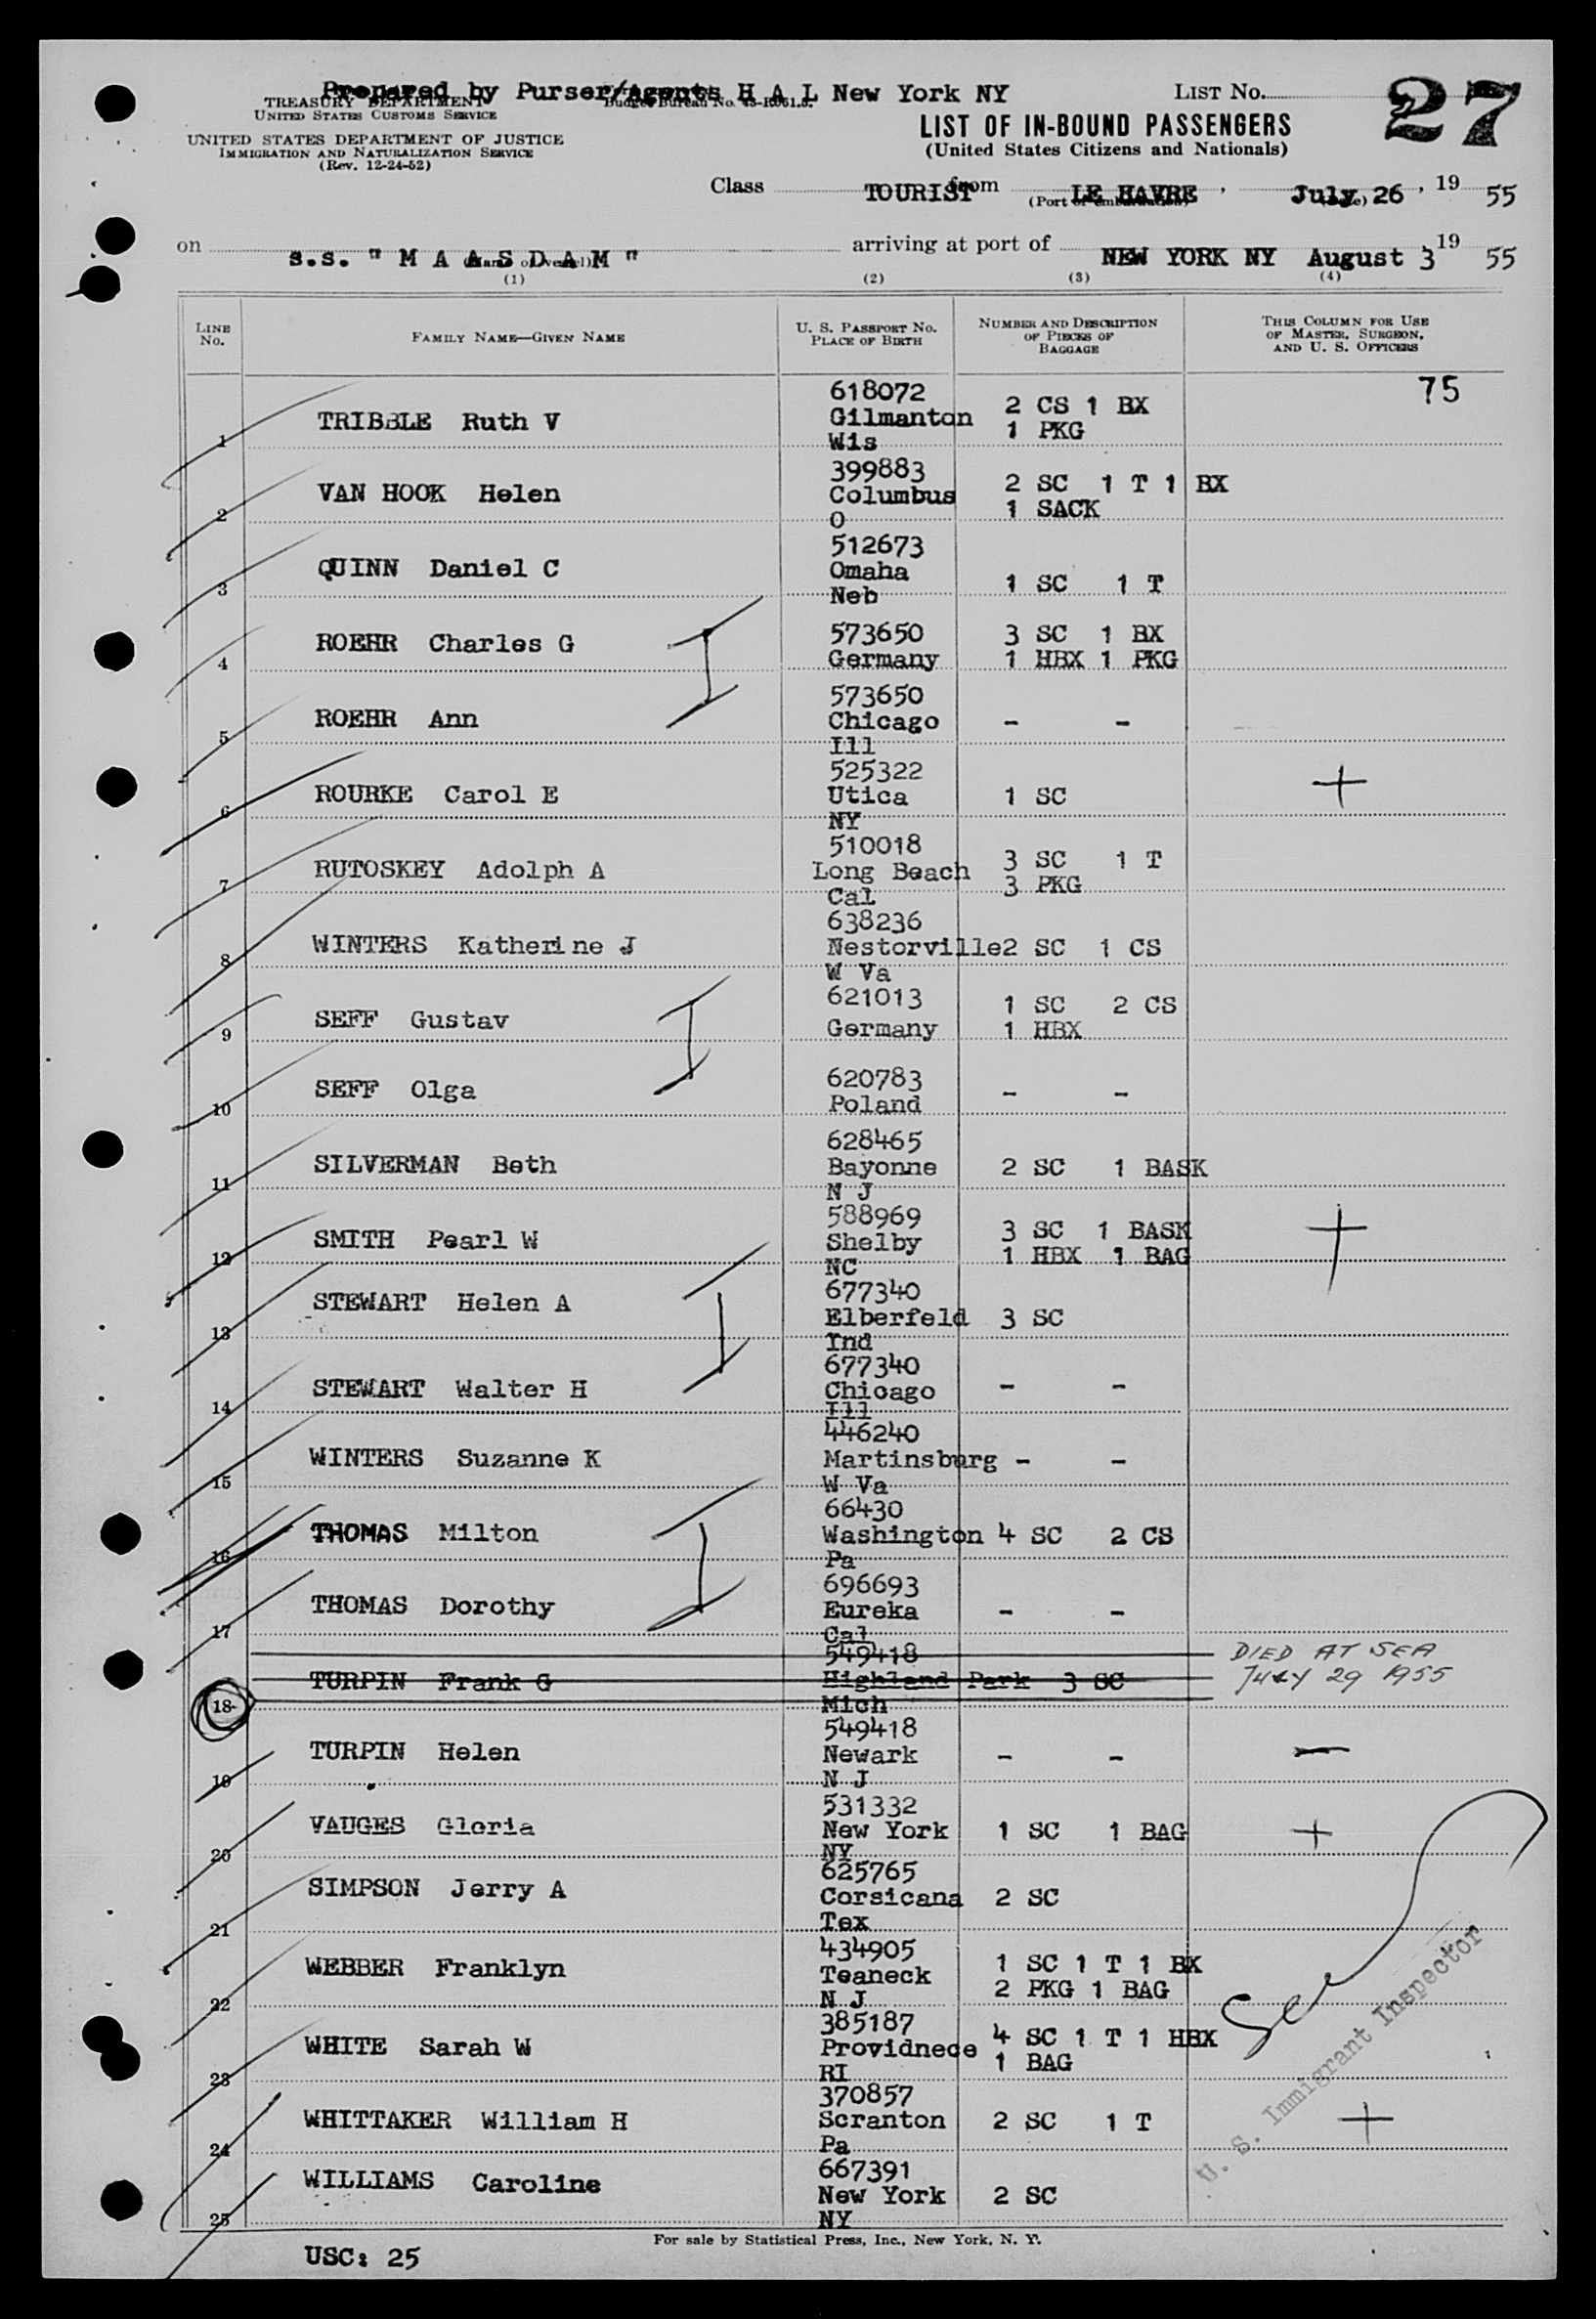 Prepared by Purser/Agents H A L New York NY
TREASURY DEPARTMENT
UNITED STATES CUSTOMS SERVICE
UNITED STATES DEPARTMENT OF JUSTICE
IMMIGRATION AND NATURALIZATION SERVICE
(Rev. 12-24-52)
Budget Bureau No.
LIST NO. 27
LIST OF IN-BOUND PASSENGERS
(United States Citizens and Nationals)
Class TOURIST from LE HAVRE, July 26, 19 55
on s.s. "M A A S D A M" arriving at port of NEW YORK NY August 3 19 55
(1) (2) (3) (4)
LINE NO. FAMILY NAME—GIVEN NAME U. S. PASSPORT NO. PLACE OF BIRTH NUMBER AND DESCRIPTION OF PIECES OF BAGGAGE THIS COLUMN FOR USE OF MASTER, SURGEON, AND U. S. OFFICERS
75
1 TRIBBLE Ruth V 618072 Gilmanton Wis 2 CS 1 BX 1 PKG
2 VAN HOOK Helen 399883 Columbus O 2 SC 1 T 1 BX 1 SACK
3 QUINN Daniel C 512673 Omaha Neb 1 SC 1 T
4 ROEHR Charles G 573650 Germany 3 SC 1 BX 1 HBX 1 PKG
5 ROEHR Ann 573650 Chicago Ill - -
6 ROURKE Carol E 525322 Utica NY 1 SC +
7 RUTOSKEY Adolph A 510018 Long Beach Cal 3 SC 1 T 3 PKG
8 WINTERS Katherine J 638236 Nestorville W Va 2 SC 1 CS
9 SEFF Gustav 621013 Germany 1 SC 2 CS 1 HBX
10 SEFF Olga 620783 Poland - -
11 SILVERMAN Beth 628465 Bayonne N J 2 SC 1 BASK
12 SMITH Pearl W 588969 Shelby NC 3 SC 1 BASK 1 HBX 1 BAG +
13 STEWART Helen A 677340 Elberfeld Ind 3 SC
14 STEWART Walter H 677340 Chicago Ill - -
15 WINTERS Suzanne K 446240 Martinsburg W Va - -
16 THOMAS Milton 66430 Washington Pa 4 SC 2 CS
17 THOMAS Dorothy 696693 Eureka Cal - -
18 TURPIN Frank G 549418 Highland Park Mich 3 SC DIED AT SEA JULY 29 1955
19 TURPIN Helen 549418 Newark N J - - -
20 VAUGES Gloria 531332 New York NY 1 SC 1 BAG +
21 SIMPSON Jerry A 625765 Corsicana Tex 2 SC
22 WEBBER Franklyn 434905 Teaneck N J 1 SC 1 T 1 BX 2 PKG 1 BAG
23 WHITE Sarah W 385187 Providnece RI 4 SC 1 T 1 HBX 1 BAG
24 WHITTAKER William H 370857 Scranton Pa 2 SC 1 T +
25 WILLIAMS Caroline 667391 New York NY 2 SC
U. S. Immigrant Inspector
For sale by Statistical Press, Inc., New York, N. Y.
USC: 25